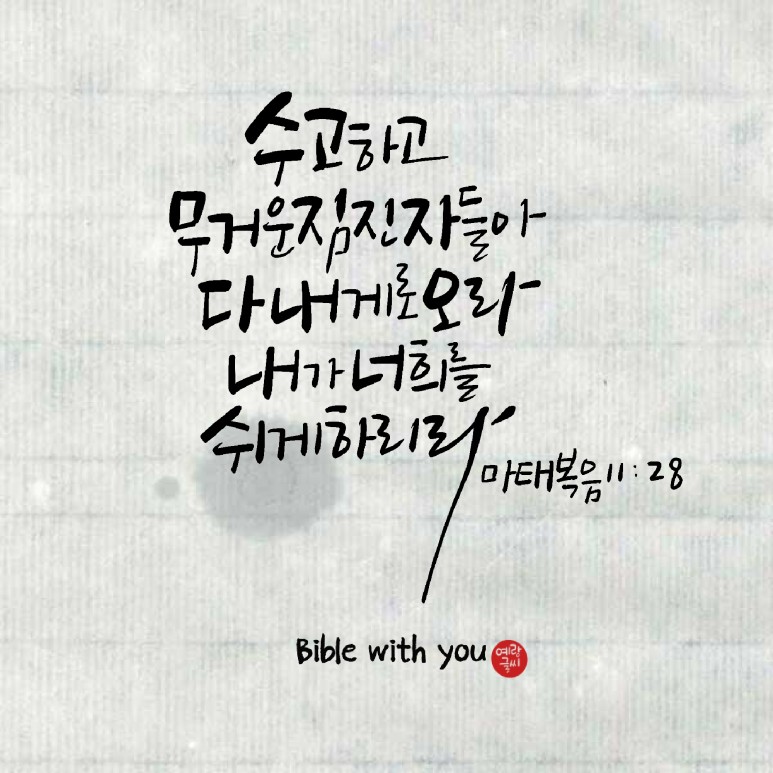 수고하고
무거운짐진자들아
다내게로오라
내가너희를
쉬게하리라
마태복음11:28
Bible with you
예랑
글씨